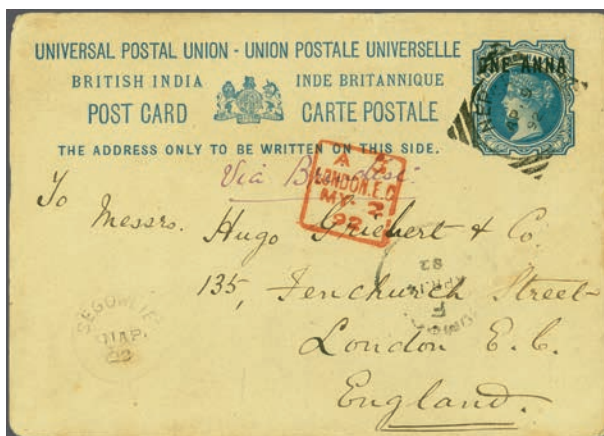 UNIVERSAL POSTAL UNION - UNION POSTALE UNIVERSELLE
BRITISH INDIA INDE BRITANNIQUE
POST CARD CARTE POSTALE
ONE ANNA
THE ADDRESS ONLY TO BE WRITTEN ON THIS SIDE.
Via Brindisi
A
LONDON.E.C
MY. 2
92
To
Messrs. Hugo Griebert & Co.
135, Fenchurch Street
London E.C.
England.
SEGOWLIE
11 AP.
92